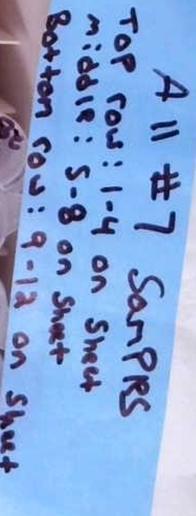 All #7 SamPRS
Top row: 1-4 on Sheet
middle: 5-8 on Sheet
Bottom row: 9-12 on Sheet